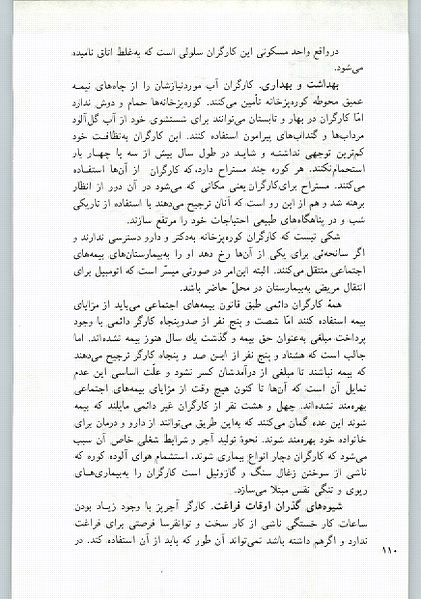 درواقع واحد مسکونی این کارگران سلولی است که به‌غلط اتاق نامیده
می‌شود.
بهداشت و بهداری. کارگران آب موردنیازشان را از چاه‌های نیمه
عمیق محوطه کوره‌پزخانه تأمین می‌کنند. کوره‌پزخانه‌ها حمام و دوش ندارد
امّا کارگران در بهار و تابستان می‌توانند برای شستشوی خود از آب گل‌آلود
مردابها و گندابهای پیرامون استفاده کنند. این کارگران به‌نظافت خود
کم‌ترین توجهی نداشته و شاید در طول سال بیش از سه یا چهار بار
استحمام‌نکنند. هر کوره چند مستراح دارد، که کارگران از آن‌ها استفاده
می‌کنند. مستراح برای‌کارگران یعنی مکانی که می‌شود در آن دور از انظار
برهنه شد و هم از این رو است که آنان ترجیح می‌دهند با استفاده از تاریکی
شب و در پناهگاه‌های طبیعی احتیاجات خود را مرتفع سازند.
شکی نیست که کارگران کوره‌پزخانه به‌دکتر و دارو دسترسی ندارند و
اگر سانحه‌ئی برای یکی از آن‌ها رخ دهد او را به‌بیمارستان‌های بیمه‌های
اجتماعی منتقل می‌کنند. البته این‌امر در صورتی میسّر است که اتومبیل برای
انتقال مریض به‌بیمارستان در محلّ حاضر باشد.
همهٔ کارگران دائمی طبق قانون بیمه‌های اجتماعی می‌باید از مزایای
بیمه استفاده کنند امّا شصت و پنج نفر از صدوپنجاه کارگر دائمی با وجود
پرداخت مبلغی به‌عنوان حق بیمه و گذشت یك سال هنوز بیمه نشده‌اند. اما
جالب است که هشتاد و پنج نفر از این صد و پنجاه کارگر ترجیح می‌دهند
که بیمه نباشند تا مبلغی از درآمدشان کسر نشود و علّت اساسی این عدم
تمایل آن است که آن‌ها تا کنون هیچ وقت از مزایای بیمه‌های اجتماعی
بهره‌مند نشده‌اند. چهل و هشت نفر از کارگران غیر دائمی مایلند که بیمه
شوند این عده گمان می‌کنند که به‌این طریق می‌توانند از دارو و درمان برای
خانواده خود بهره‌مند شوند. نحوهٔ تولید آجر و شرایط شغلی خاص آن سبب
می‌شود که کارگران دچار انواع بیماری شوند. استشمام هوای آلوده کوره که
ناشی از سوختن زغال سنگ و گازوئیل است کارگران را به‌بیماری‌های
ریوی و تنگی نفس مبتلا می‌سازد.
شیوه‌های گذران اوقات فراغت. کارگر آجرپز با وجود زیاد بودن
ساعات کار خستگی ناشی از کار سخت و توانفرسا فرصتی برای فراغت
ندارد و اگرهم داشته باشد نمی‌تواند آن طور که باید از آن استفاده کند. در
۱۱۰